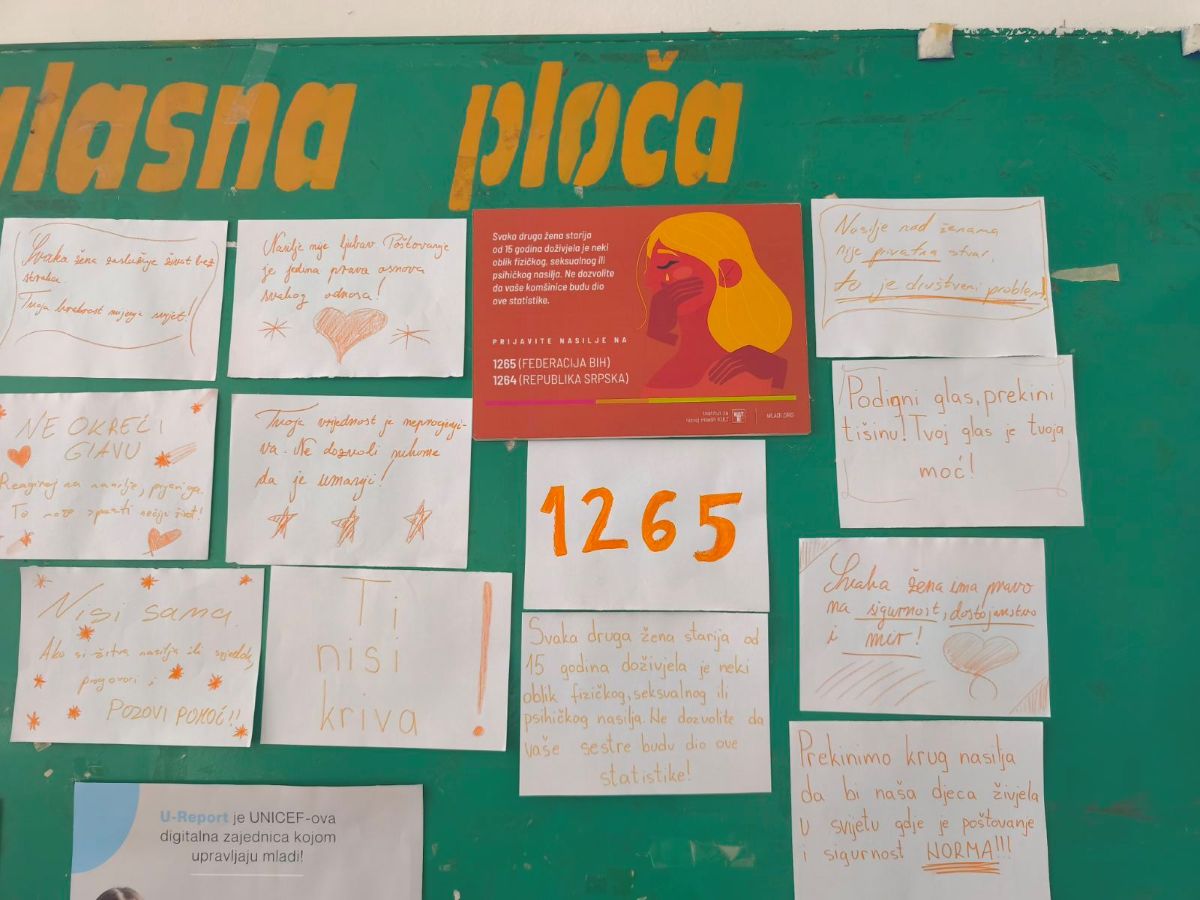 glasna ploča
Svaka žena zaslužuje život bez
straha.
Tvoja hrabrost mijenja svijet!
Nasilje nije ljubav Poštovanje
je jedina prava osnova
svakog odnosa!
Svaka druga žena starija
od 15 godina doživjela je neki
oblik fizičkog, seksualnog ili
psihičkog nasilja. Ne dozvolite
da vaše komšinice budu dio
ove statistike.
PRIJAVITE NASILJE NA
1265 (FEDERACIJA BIH)
1264 (REPUBLIKA SRPSKA)
Institut za
razvoj mladih KULT
MLADI.ORG
Nasilje nad ženama
nije privatna stvar,
to je društveni problem!
NE OKREĆI
GLAVU
Reagiraj na nasilje, prijavi ga.
To može spasiti nečiji život!
Tvoja vrijednost je neprocjenji-
va. Ne dozvoli nikome
da je umanji!
1265
Podigni glas, prekini
tišinu! Tvoj glas je tvoja
moć!
Nisi sama.
Ako si žrtva nasilja ili svjedok,
progovori i
POZOVI POMOĆ!!
Ti
nisi
kriva !
Svaka druga žena starija od
15 godina doživjela je neki
oblik fizičkog, seksualnog ili
psihičkog nasilja. Ne dozvolite da
vaše sestre budu dio ove
statistike!
Svaka žena ima pravo
na sigurnost, dostojanstvo
i mir!
Prekinimo krug nasilja
da bi naša djeca živjela
u svijetu gdje je poštovanje
i sigurnost NORMA!!!
U-Report je UNICEF-ova
digitalna zajednica kojom
upravljaju mladi!